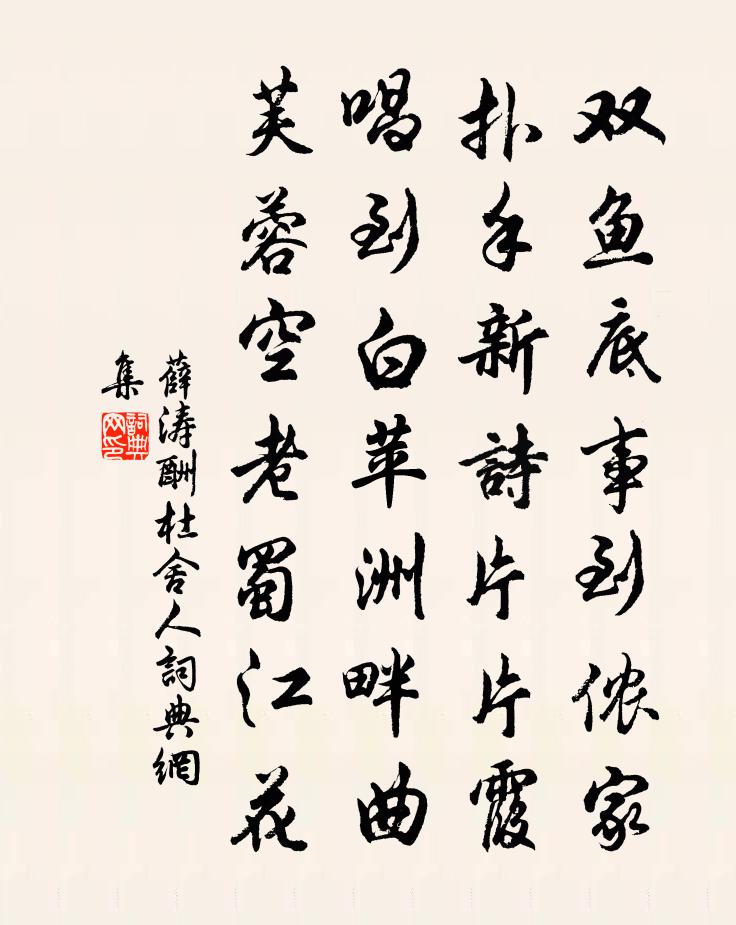 双鱼底事到侬家
扑手新詩片片霞
唱到白苹洲畔曲
芙蓉空老蜀江花
薛涛酬杜舍人詞典網
集
詞典
网印